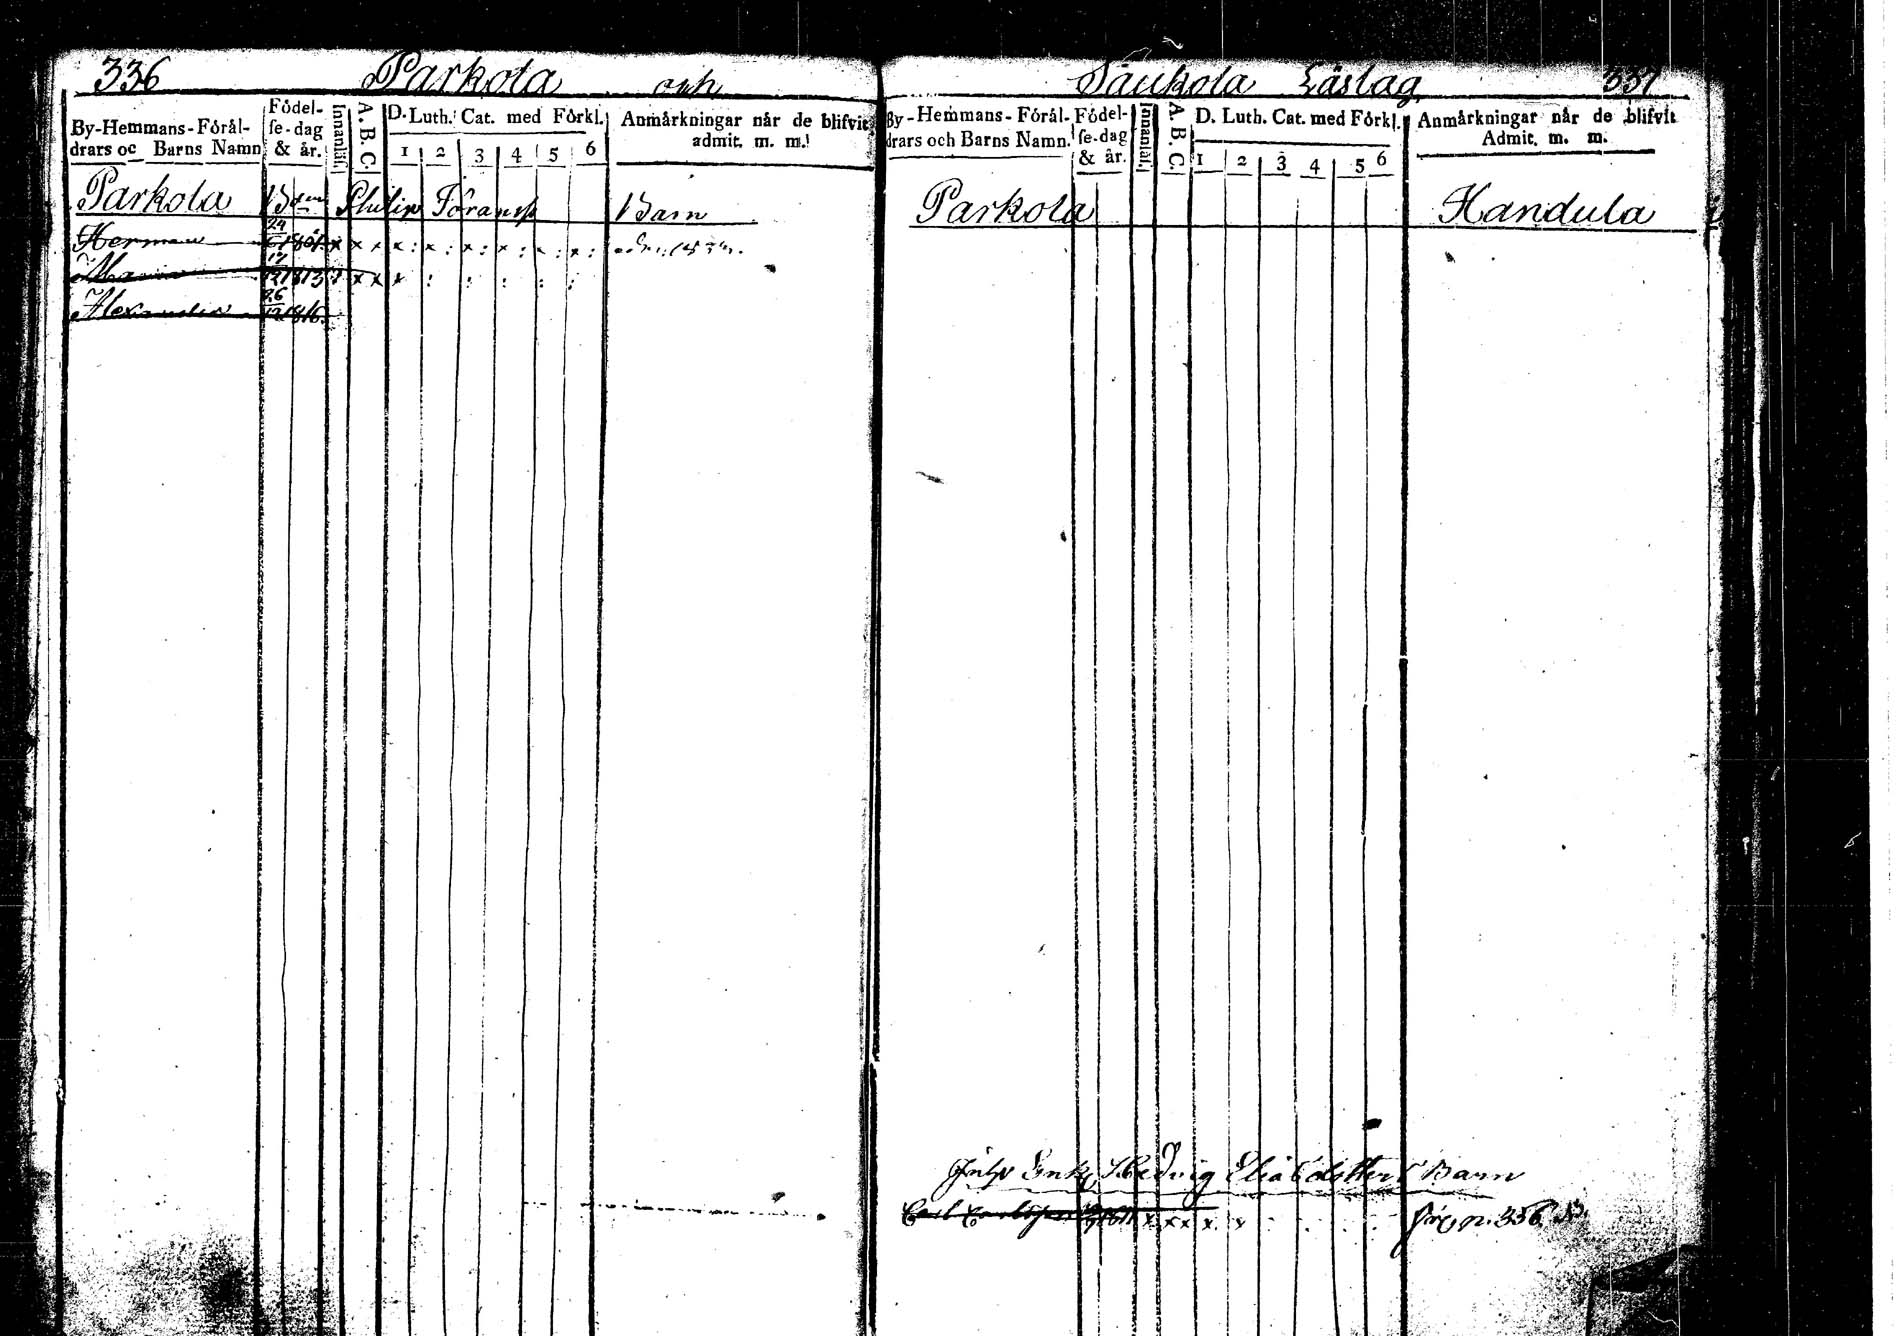 336 Parkola och
By-Hemmans-Förål-
drars oc Barns Namn
Födel-
se-dag
& år.
Innanläs.
A. B. C.
D. Luth. Cat. med Förkl.
1 2 3 4 5 6
Anmärkningar når de blifvit
admit. m. m.
Parkola Bden Philip Göransss Barn
Herman 24 1801 x x x x : x : x : x : x : x : adm. 18
Maria 17 12 1813 x x x : : : : :
Alexander 26 12 1816.
Säukola Läslag 337
By-Hemmans-Förål-
drars och Barns Namn.
Födel-
se-dag
& år.
Innanläs.
A. B. C.
D. Luth. Cat. med Förkl.
1 2 3 4 5 6
Anmärkningar når de blifvit
Admit. m. m.
Parkola Handula
Enk. Hedvig Eliæ dotters Barn
Carl Carlsson x x x x x p. 356.